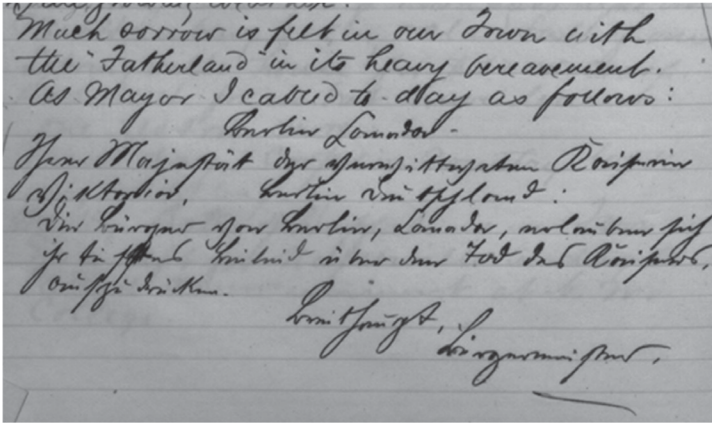 Much sorrow is felt in our Town with
the "Fatherland" in its heavy bereavement.
As Mayor I cabled to-day as follows:
Berlin Canada -
Ihrer Majestät der verwittweten Kaiserin
Viktoria, Berlin Deutschland:
Die Bürger von Berlin, Canada, erlauben sich
ihr tiefstes Beileid über den Tod des Kaisers,
auszudrücken.
Breithaupt,
Bürgermeister.